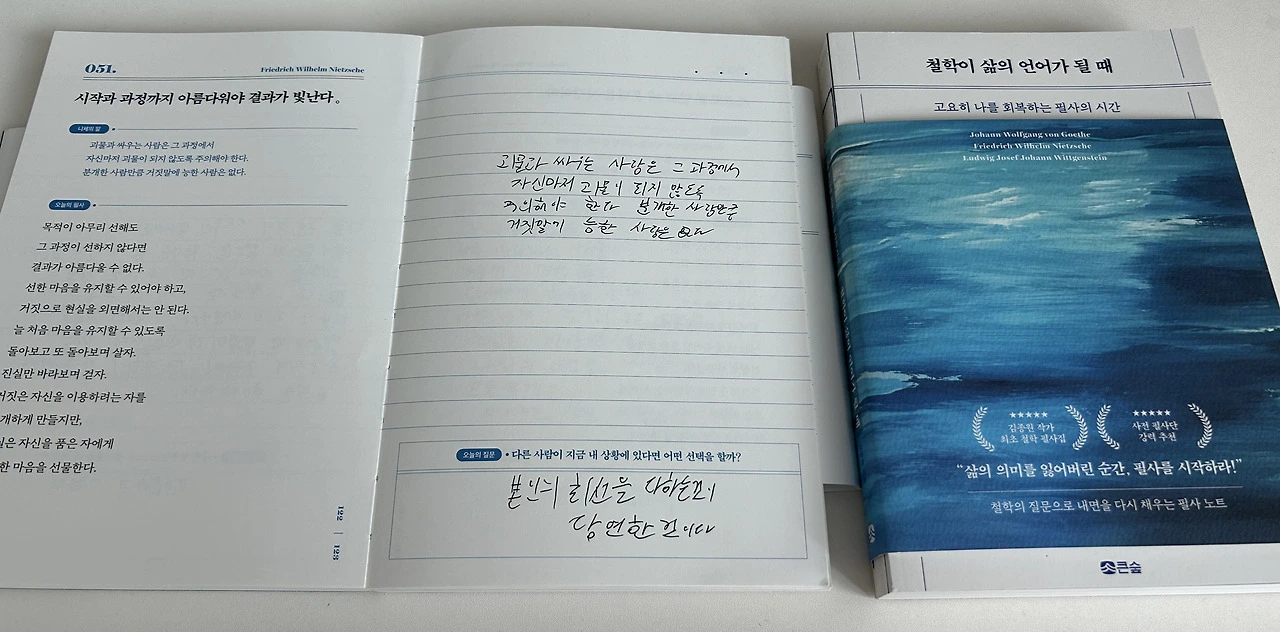 051.
Friedrich Wilhelm Nietzsche
시작과 과정까지 아름다워야 결과가 빛난다。
니체의 말
괴물과 싸우는 사람은 그 과정에서
자신마저 괴물이 되지 않도록 주의해야 한다.
분개한 사람만큼 거짓말에 능한 사람은 없다.
오늘의 필사
목적이 아무리 선해도
그 과정이 선하지 않다면
결과가 아름다울 수 없다.
선한 마음을 유지할 수 있어야 하고,
거짓으로 현실을 외면해서는 안 된다.
늘 처음 마음을 유지할 수 있도록
돌아보고 또 돌아보며 살자.
진실만 바라보며 걷자.
자신을 이용하려는 자를
만들지만,
자신을 품은 자에게
마음을 선물한다.
122 | 123
괴물과 싸우는 사람은 그 과정에서
자신마저 괴물이 되지 않도록
주의해야 한다 분개한 사람만큼
거짓말에 능한 사람은 없다
오늘의 질문
• 다른 사람이 지금 내 상황에 있다면 어떤 선택을 할까?
본인의 최선을 다하는것이
당연한 것이다
철학이 삶의 언어가 될 때
고요히 나를 회복하는 필사의 시간
Johann Wolfgang von Goethe
Friedrich Wilhelm Nietzsche
Ludwig Josef Johann Wittgenstein
★★★★★
김종원 작가
최초 철학 필사집
★★★★★
사전 필사단
강력 추천
“삶의 의미를 잃어버린 순간, 필사를 시작하라!”
철학의 질문으로 내면을 다시 채우는 필사 노트
큰숲